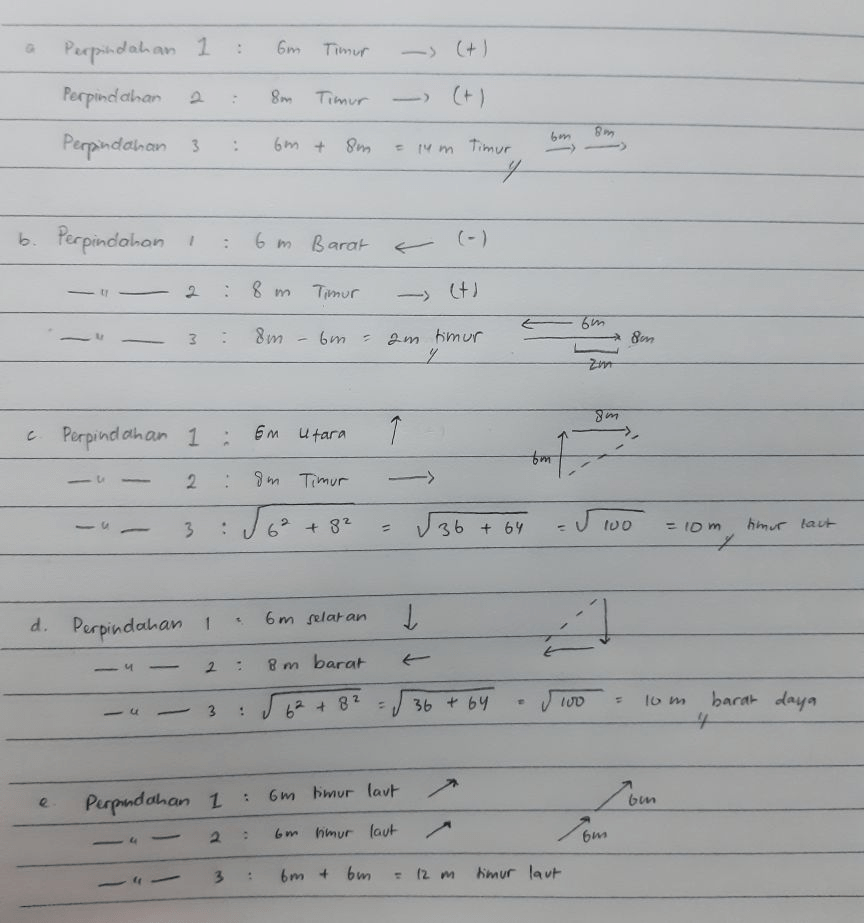 a Perpindahan 1 : 6m Timur → (+)
Perpindahan 2 : 8m Timur → (+)
Perpindahan 3 : 6m + 8m = 14 m Timur 6m → 8m →
b. Perpindahan 1 : 6 m Barat ← (-)
—"— 2 : 8 m Timur → (+)
—"— 3 : 8m - 6m = 2m timur
6m
8m
2m
c. Perpindahan 1 : 6m Utara ↑
—"— 2 : 8m Timur →
8m
6m
—"— 3 : √6² + 8² = √36 + 64 = √100 = 10 m timur laut
d. Perpindahan 1 : 6m selatan ↓
—"— 2 : 8m barat ←
—"— 3 : √6² + 8² = √36 + 64 = √100 = 10 m barat daya
e. Perpindahan 1 : 6m timur laut ↗ 6m
—"— 2 : 6m timur laut ↗ 6m
—"— 3 : 6m + 6m = 12 m timur laut